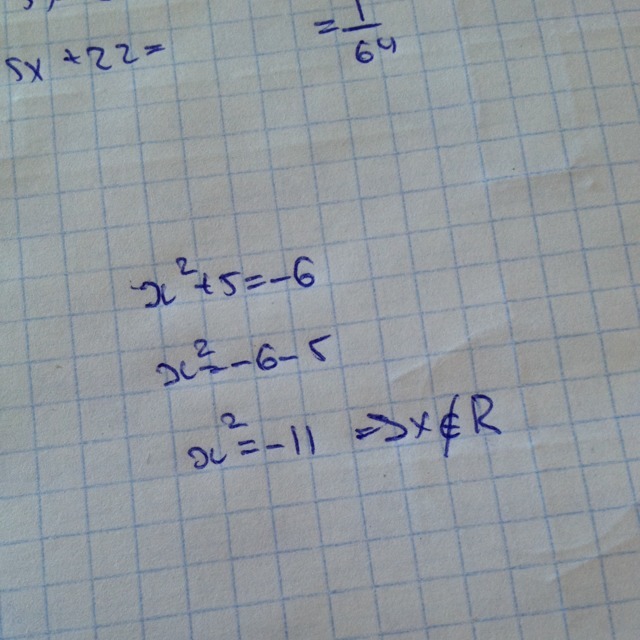 5x + 22 =
= 1/64
x² + 5 = -6
x² = -6 - 5
x² = -11 => x ∉ R